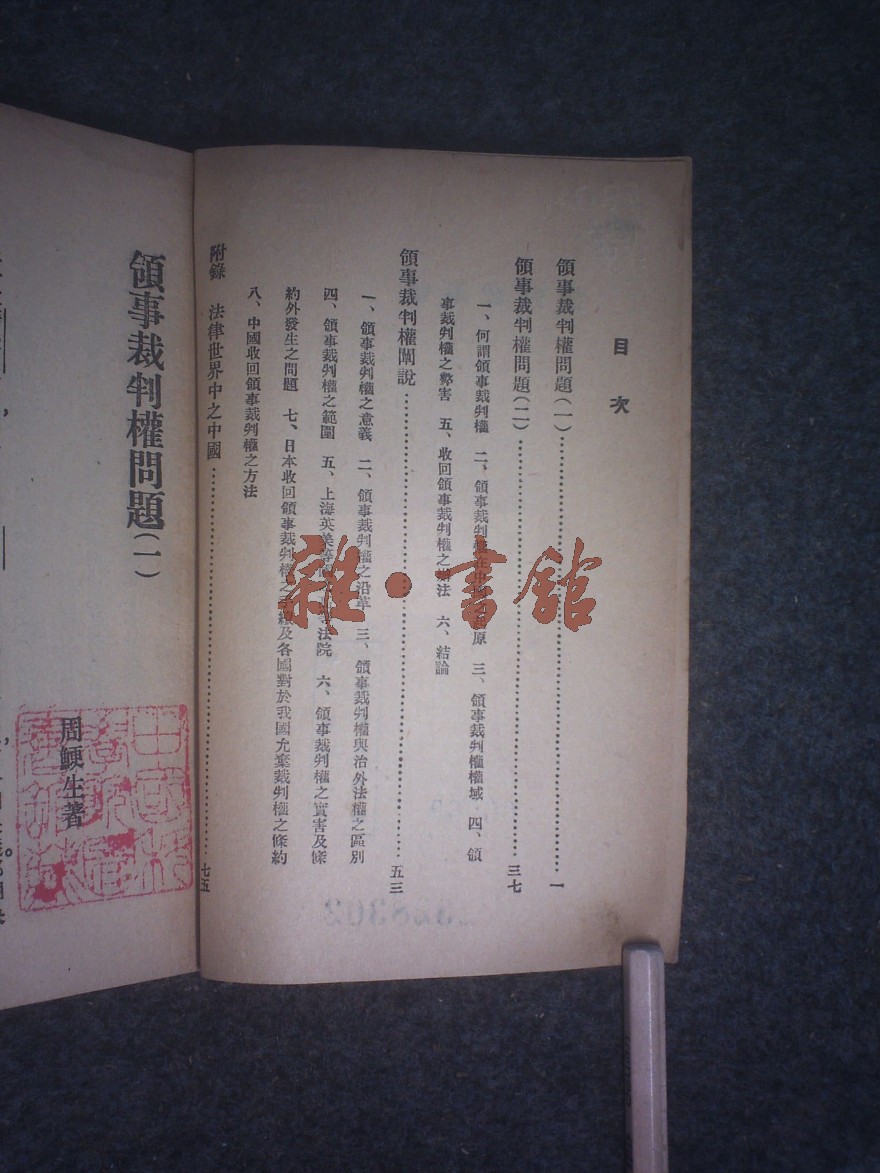 目次
領事裁判權問題(一)……一
領事裁判權問題(二)……三七
一、何謂領事裁判權 二、領事裁判權在中國之起原 三、領事裁判權權域 四、領
事裁判權之弊害 五、收回領事裁判權之辦法 六、結論
領事裁判權闡說……五三
一、領事裁判權之意義 二、領事裁判權之沿革 三、領事裁判權與治外法權之區別
四、領事裁判權之範圍 五、上海英美等 法院 六、領事裁判權之實害及條
約外發生之問題 七、日本收回領事裁判權之手續及各國對於我國允棄裁判權之條約
八、中國收回領事裁判權之方法
附錄 法律世界中之中國……七五
領事裁判權問題(一)
周鯁生著
雜·書館